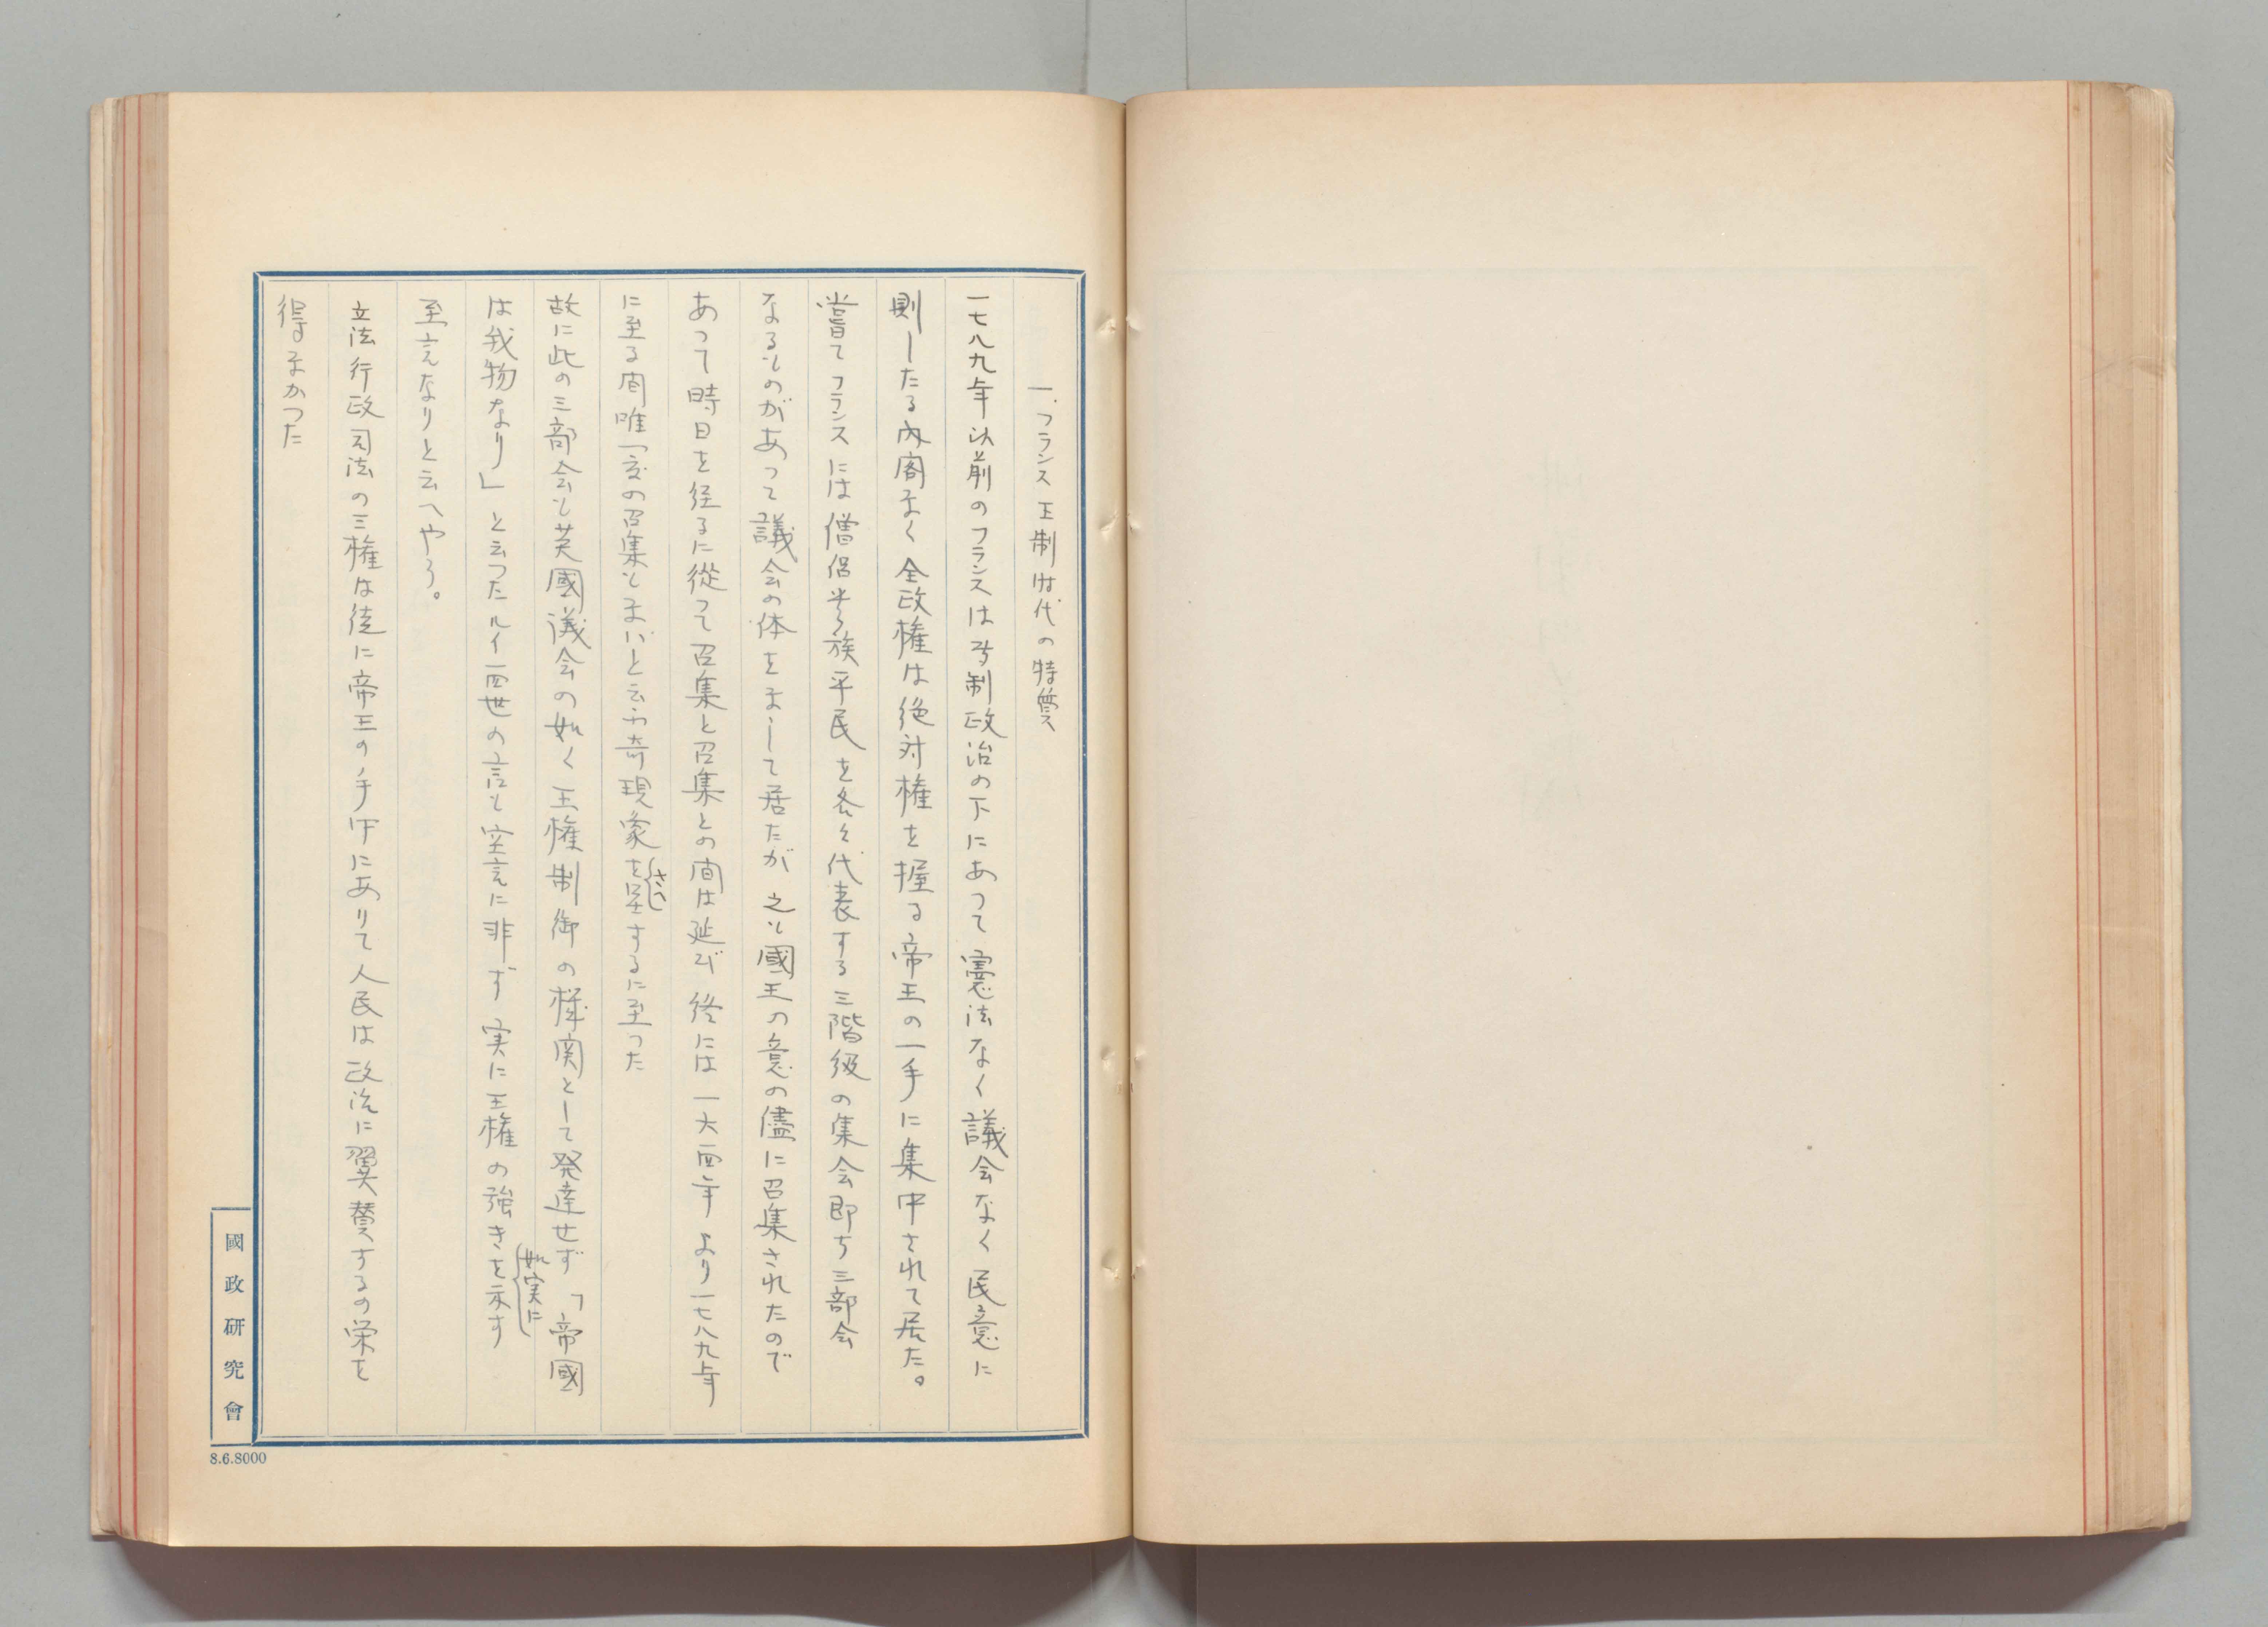 一、フランス王制時代の特質
一七八九年以前のフランスは専制政治の下にあつて憲法なく議会なく民意に
則したる内閣なく全政権は絶対権を握る帝王の一手に集中されて居た。
嘗てフランスには僧侶貴族平民を各々代表する三階級の集会即ち三部会
なるものがあつて議会の体をなして居たが之も國王の意の儘に召集されたので
あつて時日を経るに從つて召集と召集との間は延び終には一六一四年より一七八九年
に至る間唯一度の召集もないと云ふ奇現象を呈するに至つた
さへ
故に此の三部会も英國議会の如く王権制御の機関として発達せず「帝國
は我物なり」と云つたルイ一四世の言も空言に非ず実に王権の強きを示す
如実に
至言なりと云へやう。
立法行政司法の三権は徒に帝王の手中にありて人民は政治に翼賛するの栄を
得なかつた
國政研究會
8.6.8000